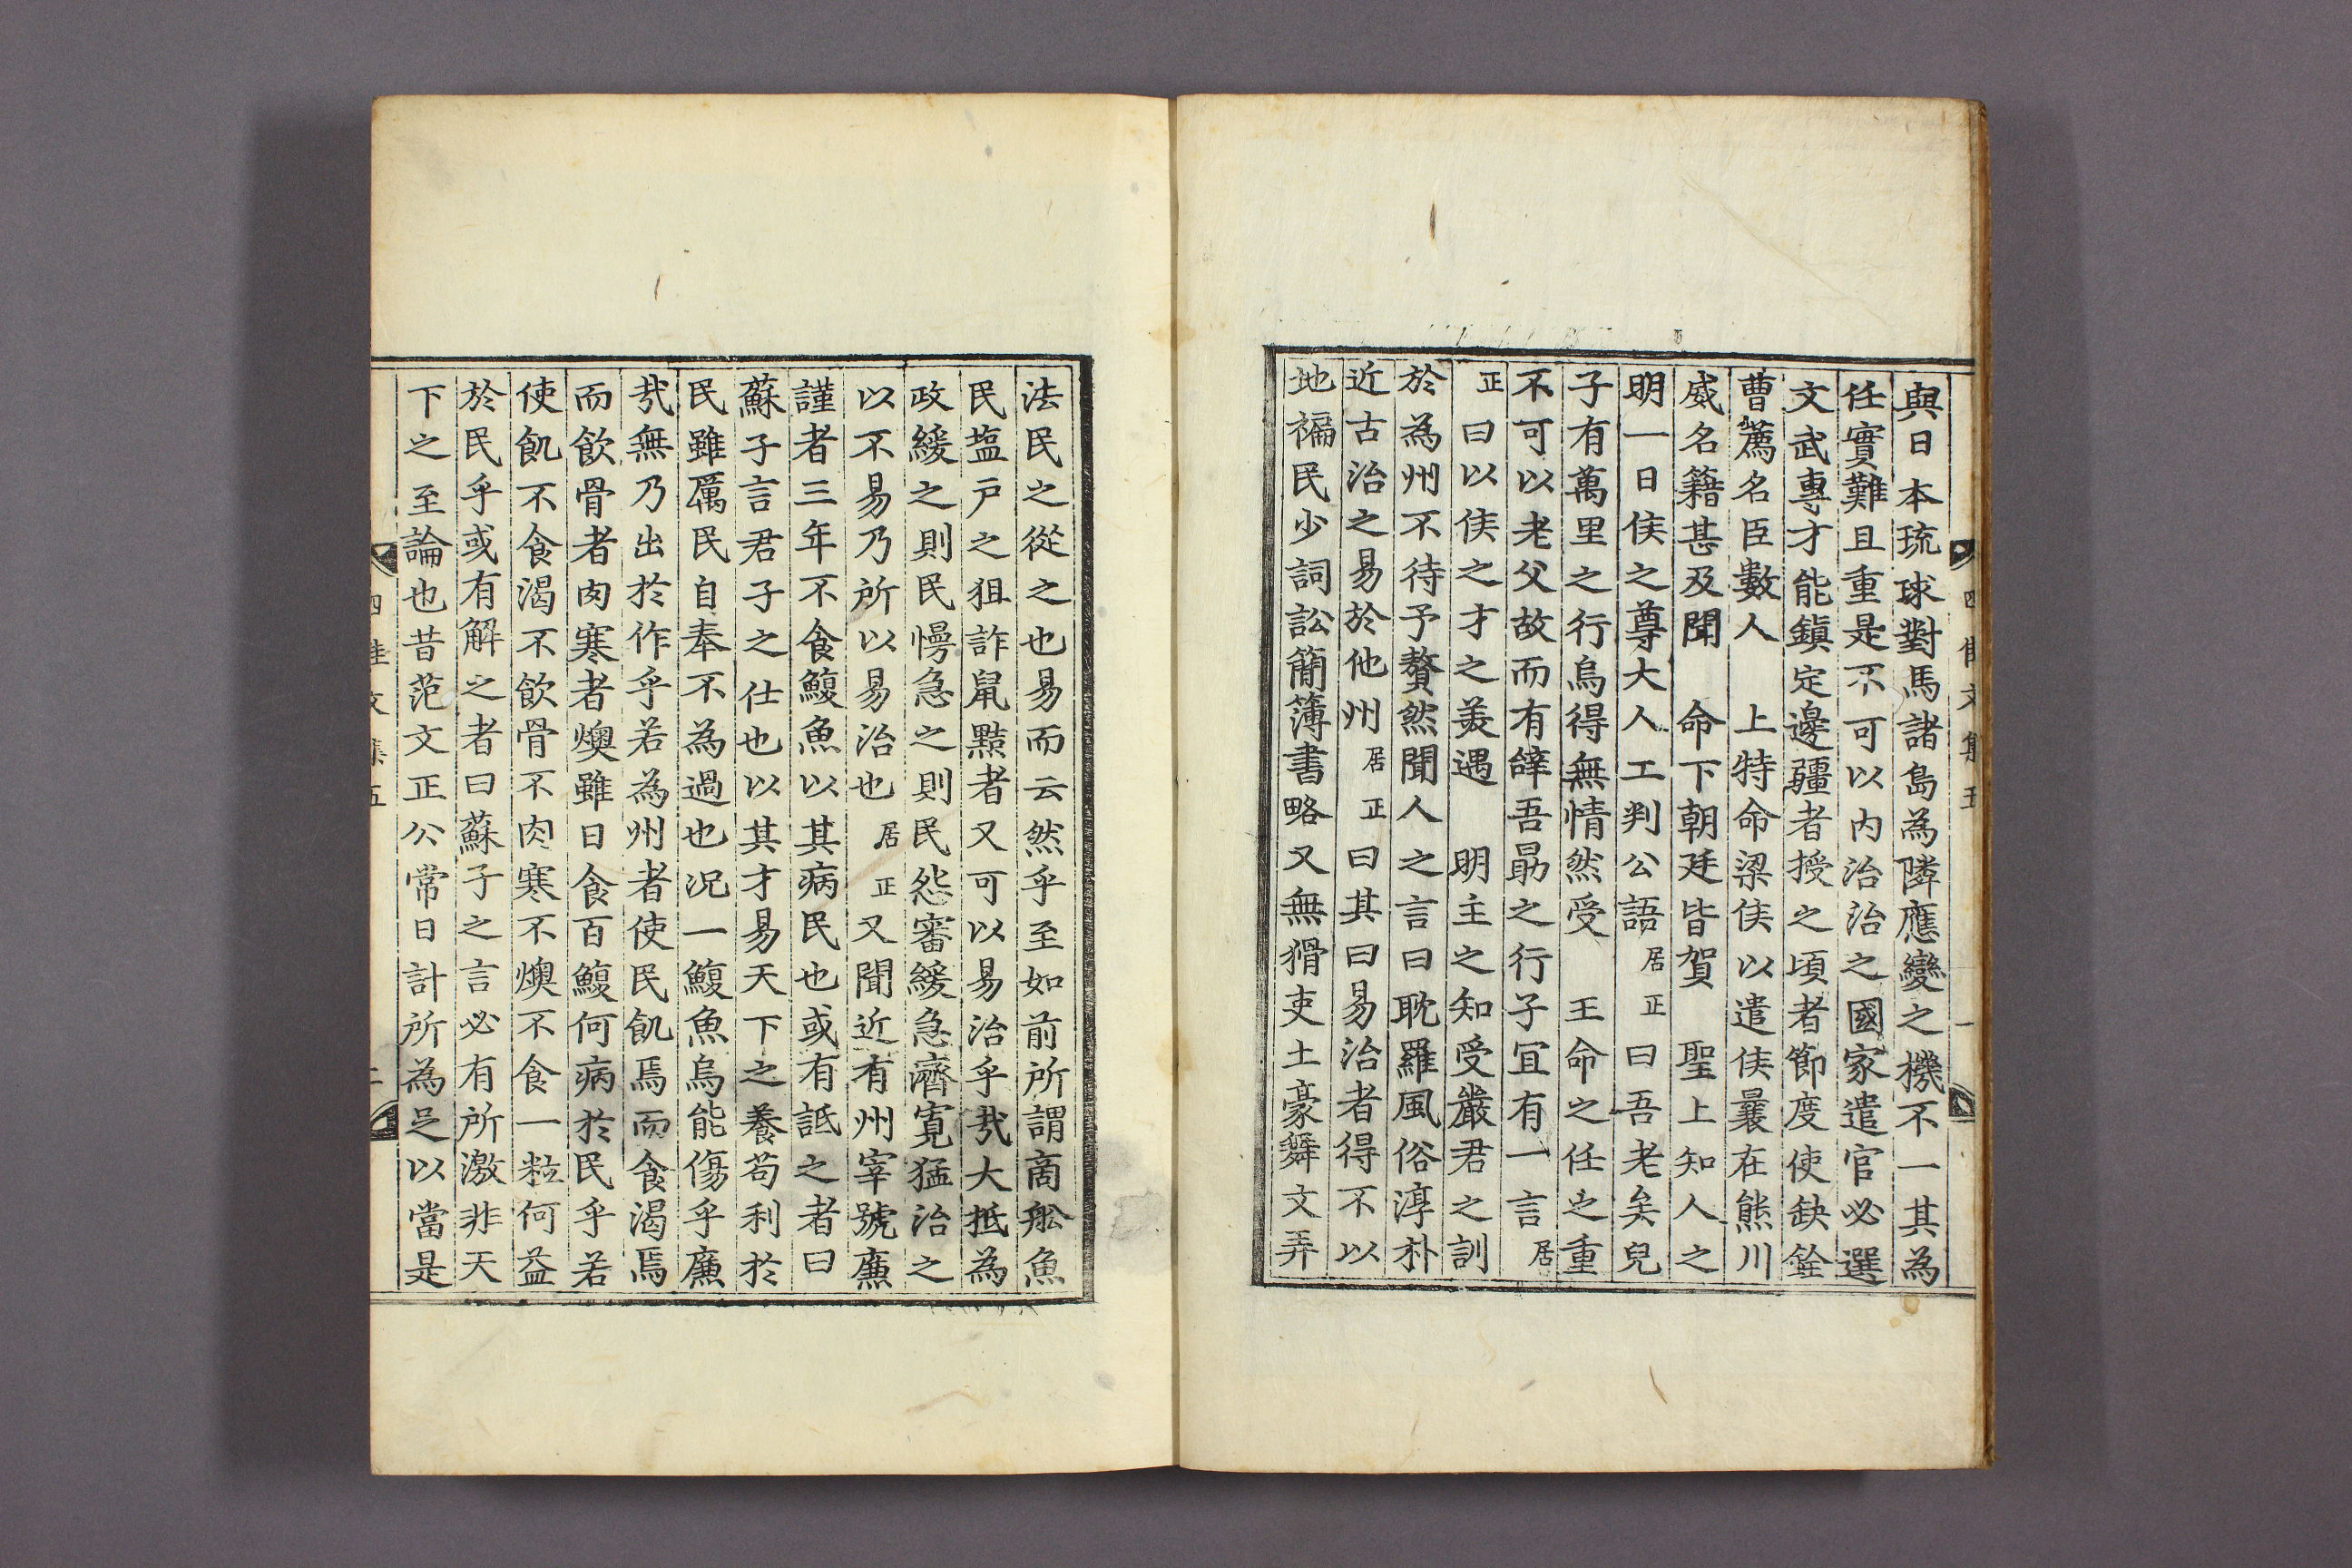 四佳文集五
一
與日本琉球對馬諸島為隣應變之機不一其為
任實難且重是不可以內治治之國家遣官必選
文武專才能鎭定邊疆者授之頃者節度使缺銓
曹薦名臣數人 上特命梁侯以遣侯曩在熊川
威名籍甚及聞 命下朝廷皆賀 聖上知人之
明一日侯之尊大人工判公語居正曰吾老矣兒
子有萬里之行烏得無情然受 王命之任之重
不可以老父故而有辭吾勗之行子宜有一言居
正曰以侯之才之羙遇 明主之知受嚴君之訓
於為州不待予贅然聞人之言曰耽羅風俗淳朴
近古治之易於他州居正曰其曰易治者得不以
地褊民少詞訟簡簿書略又無猾吏土豪舞文弄
法民之從之也易而云然乎至如前所謂商舩魚
民塩戶之狙詐鼠黠者又可以易治乎㢤大抵為
政緩之則民慢急之則民怨審緩急濟寛猛治之
以不易乃所以易治也居正又聞近有州宰號廉
謹者三年不食鰒魚以其病民也或有詆之者曰
蘇子言君子之仕也以其才易天下之養苟利於
民雖厲民自奉不為過也况一鰒魚烏能傷乎廉
㢤無乃出於作乎若為州者使民飢焉而食渴焉
而飮骨者肉寒者燠雖日食百鰒何病於民乎若
使飢不食渴不飮骨不肉寒不燠不食一粒何益
於民乎或有解之者曰蘇子之言必有所激非天
下之至論也昔范文正公常日計所為足以當是
四佳文集五
二